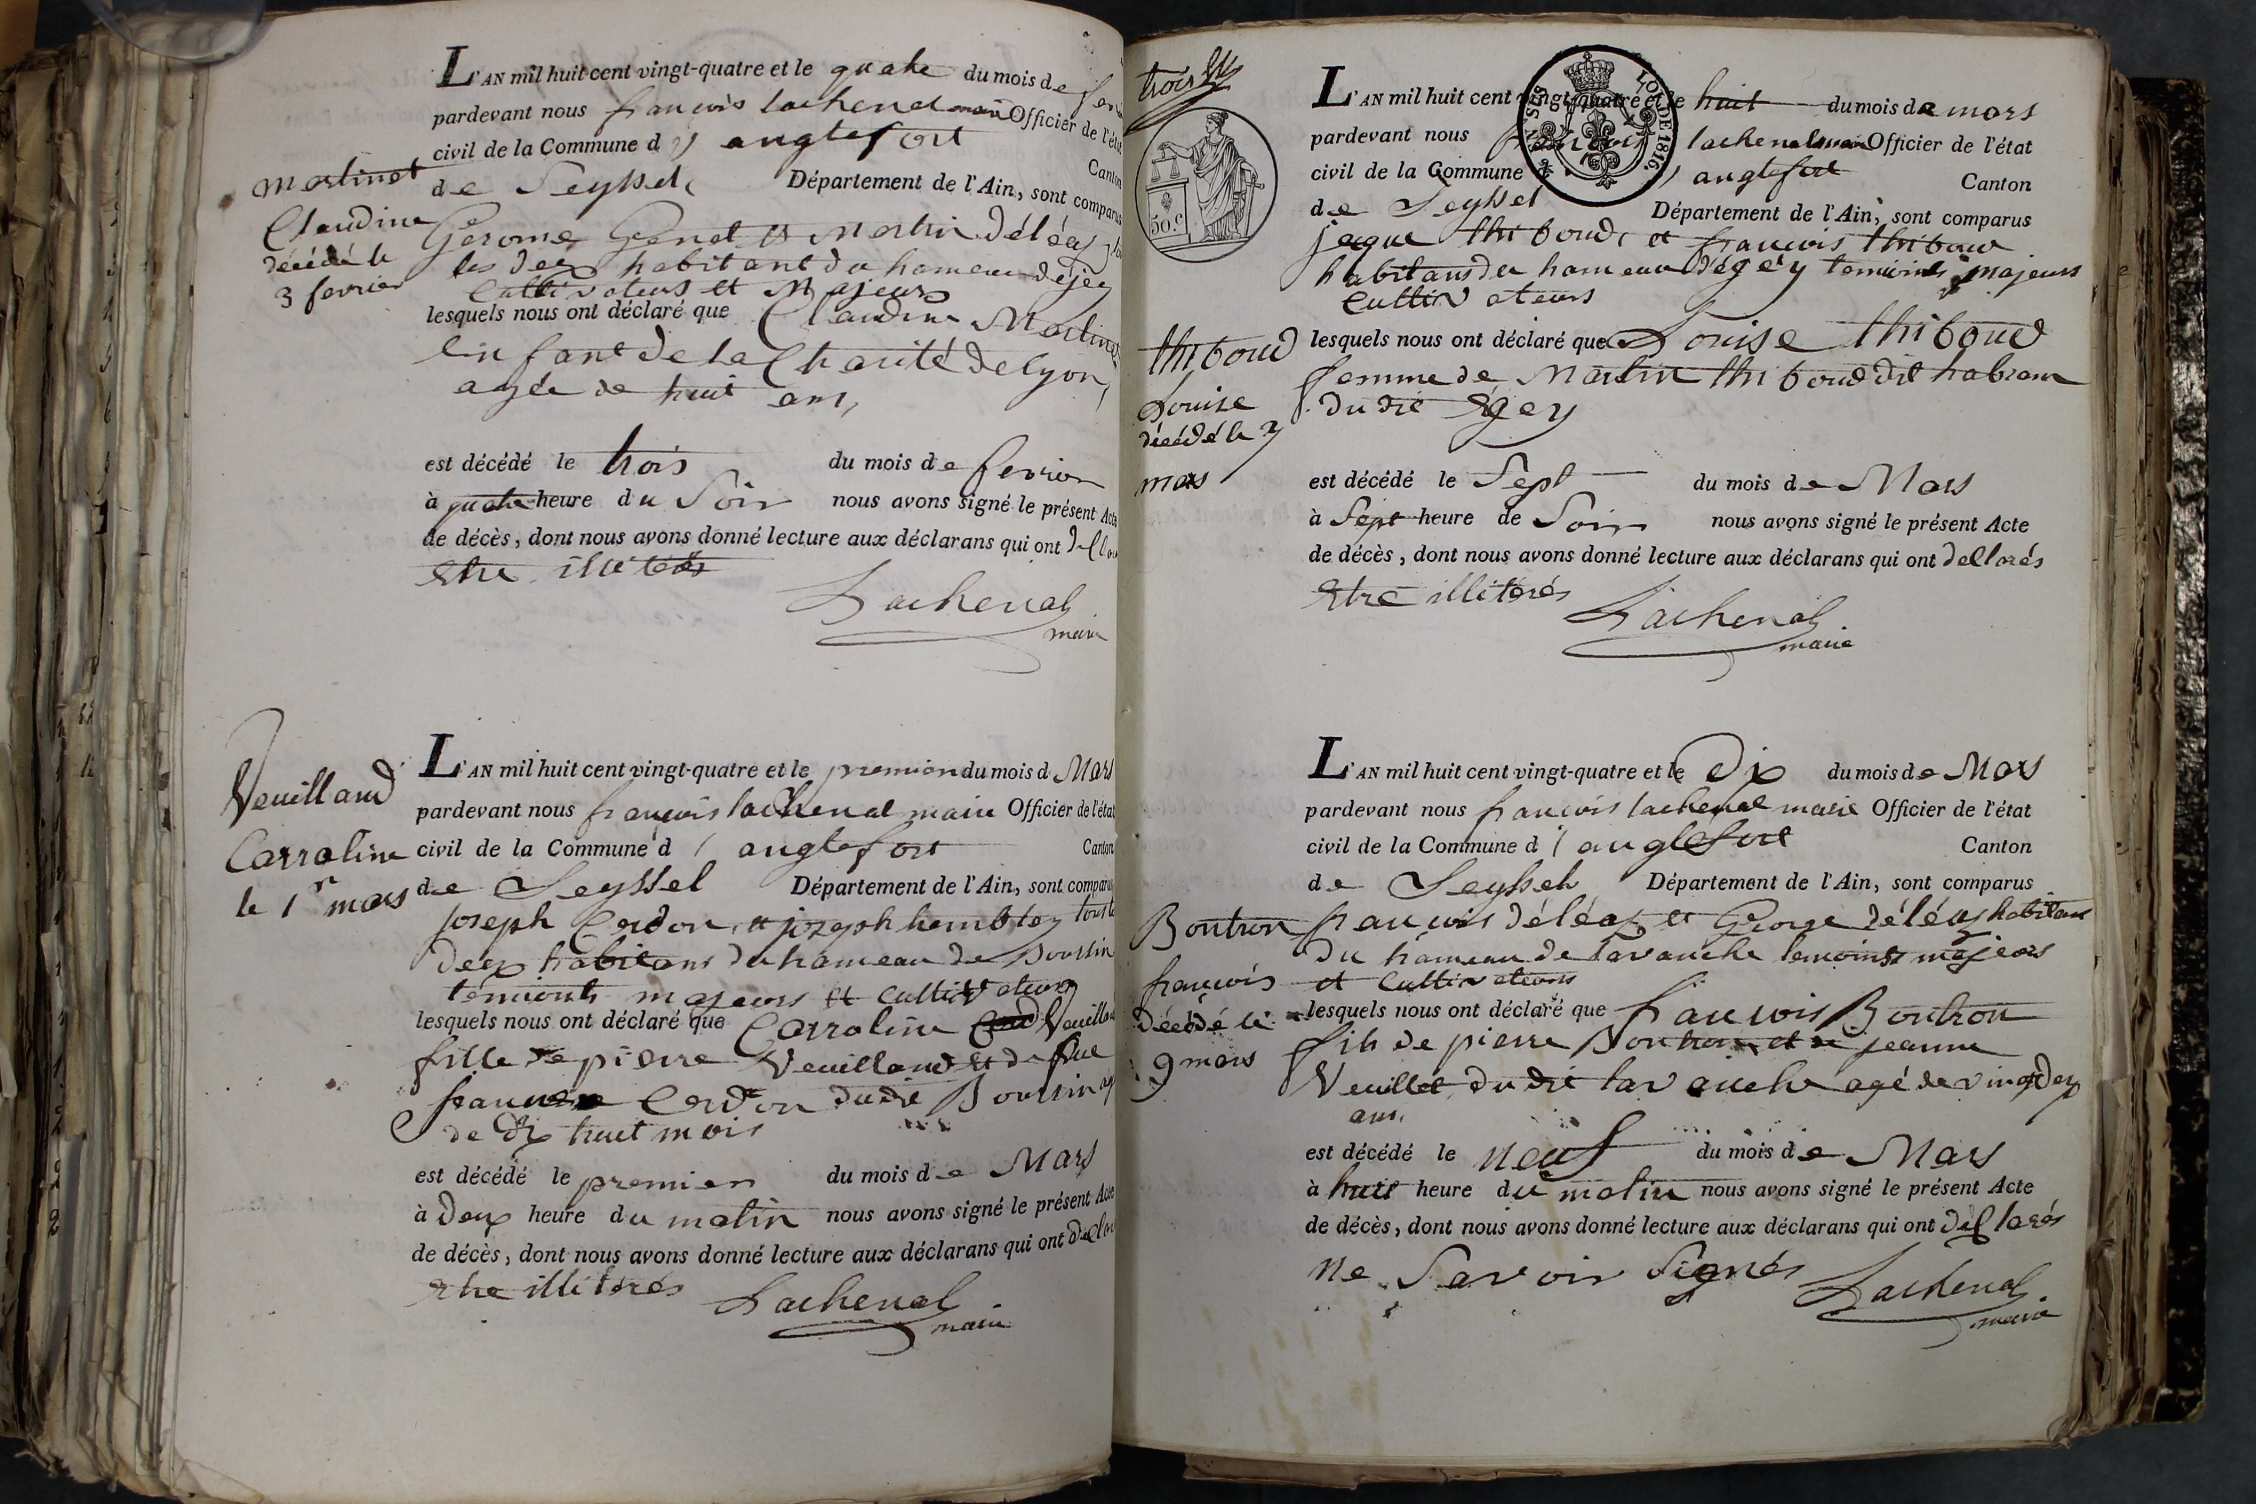 L'AN mil huit cent vingt-quatre et le quatre du mois de
pardevant nous francois lachenal maire Officier de l'état
civil de la Commune d'anglefort
Canton
de Seyssel Département de l'Ain, sont comparus
Martinet
Claudine
décédé le
3 fevrier
Gerome Genet et Martin déléaz
les deux habitant du hameau déjey
Cultivateurs et Majeurs
lesquels nous ont déclaré que Claudine Martinet
Enfant de la Charité de Lyon,
agée de huit ans,
est décédé le trois du mois de fevrier
à quatre heure du Soir nous avons signé le présent Acte
de décès, dont nous avons donné lecture aux déclarans qui ont
Etre illiterés
Lachenal
maire
Veuilland
Carroline
le 1r mars
L'AN mil huit cent vingt-quatre et le premier du mois d Mars
pardevant nous francois lachenal maire Officier de l'état
civil de la Commune d'anglefort Canton
de Seyssel Département de l'Ain, sont comparus
joseph Cerdon, et joseph humbley tous le
deux habitans du hameau de Boursin
témionts majeurs et cultivateurs
lesquels nous ont déclaré que Carroline
fille de pierre Veuilland et de
Cerdon dudit Boursin
de dix huit mois
est décédé le premier du mois de Mars
à deux heure du matin nous avons signé le présent Acte
de décès, dont nous avons donné lecture aux déclarans qui ont
Etre illitérés
Lachenal
maire
trois
50.c
LOI DE 1816
L'AN mil huit cent vingt-quatre et le huit du mois de mars
pardevant nous francois lachenal maire Officier de l'état
civil de la Commune d'anglefort Canton
de Seyssel Département de l'Ain, sont comparus
jaque thiboud, et francois thiboud
habitans du hameau d'égéy temoins majeurs
Cultivateurs
thiboud
Louise
décédé le 7
mars
lesquels nous ont déclaré que Louise thiboud
femme de Martin thiboud dit
du dit Egey
est décédé le Sept du mois de Mars
à Sept heure de Soir nous avons signé le présent Acte
de décès, dont nous avons donné lecture aux déclarans qui ont dellarés
Etre illitérés
Lachenal
maire
L'AN mil huit cent vingt-quatre et le Dix du mois de Mars
pardevant nous francois lachenal maire Officier de l'état
civil de la Commune d'anglefort Canton
de Seyssel Département de l'Ain, sont comparus
Bontron
francois
décédé le
9 mars
francois déléaz et George déléaz habitans
du hameau de lavanche temoins majeurs
et Cultivateurs
lesquels nous ont déclaré que francois Bontron
fils de pierre Bontron et de jeanne
Veuillet du dit lavanche agé de vingt deux
ans.
est décédé le neuf du mois de Mars
à huit heure du matin nous avons signé le présent Acte
de décès, dont nous avons donné lecture aux déclarans qui ont dellarés
ne Savoir Signés
Lachenal
maire